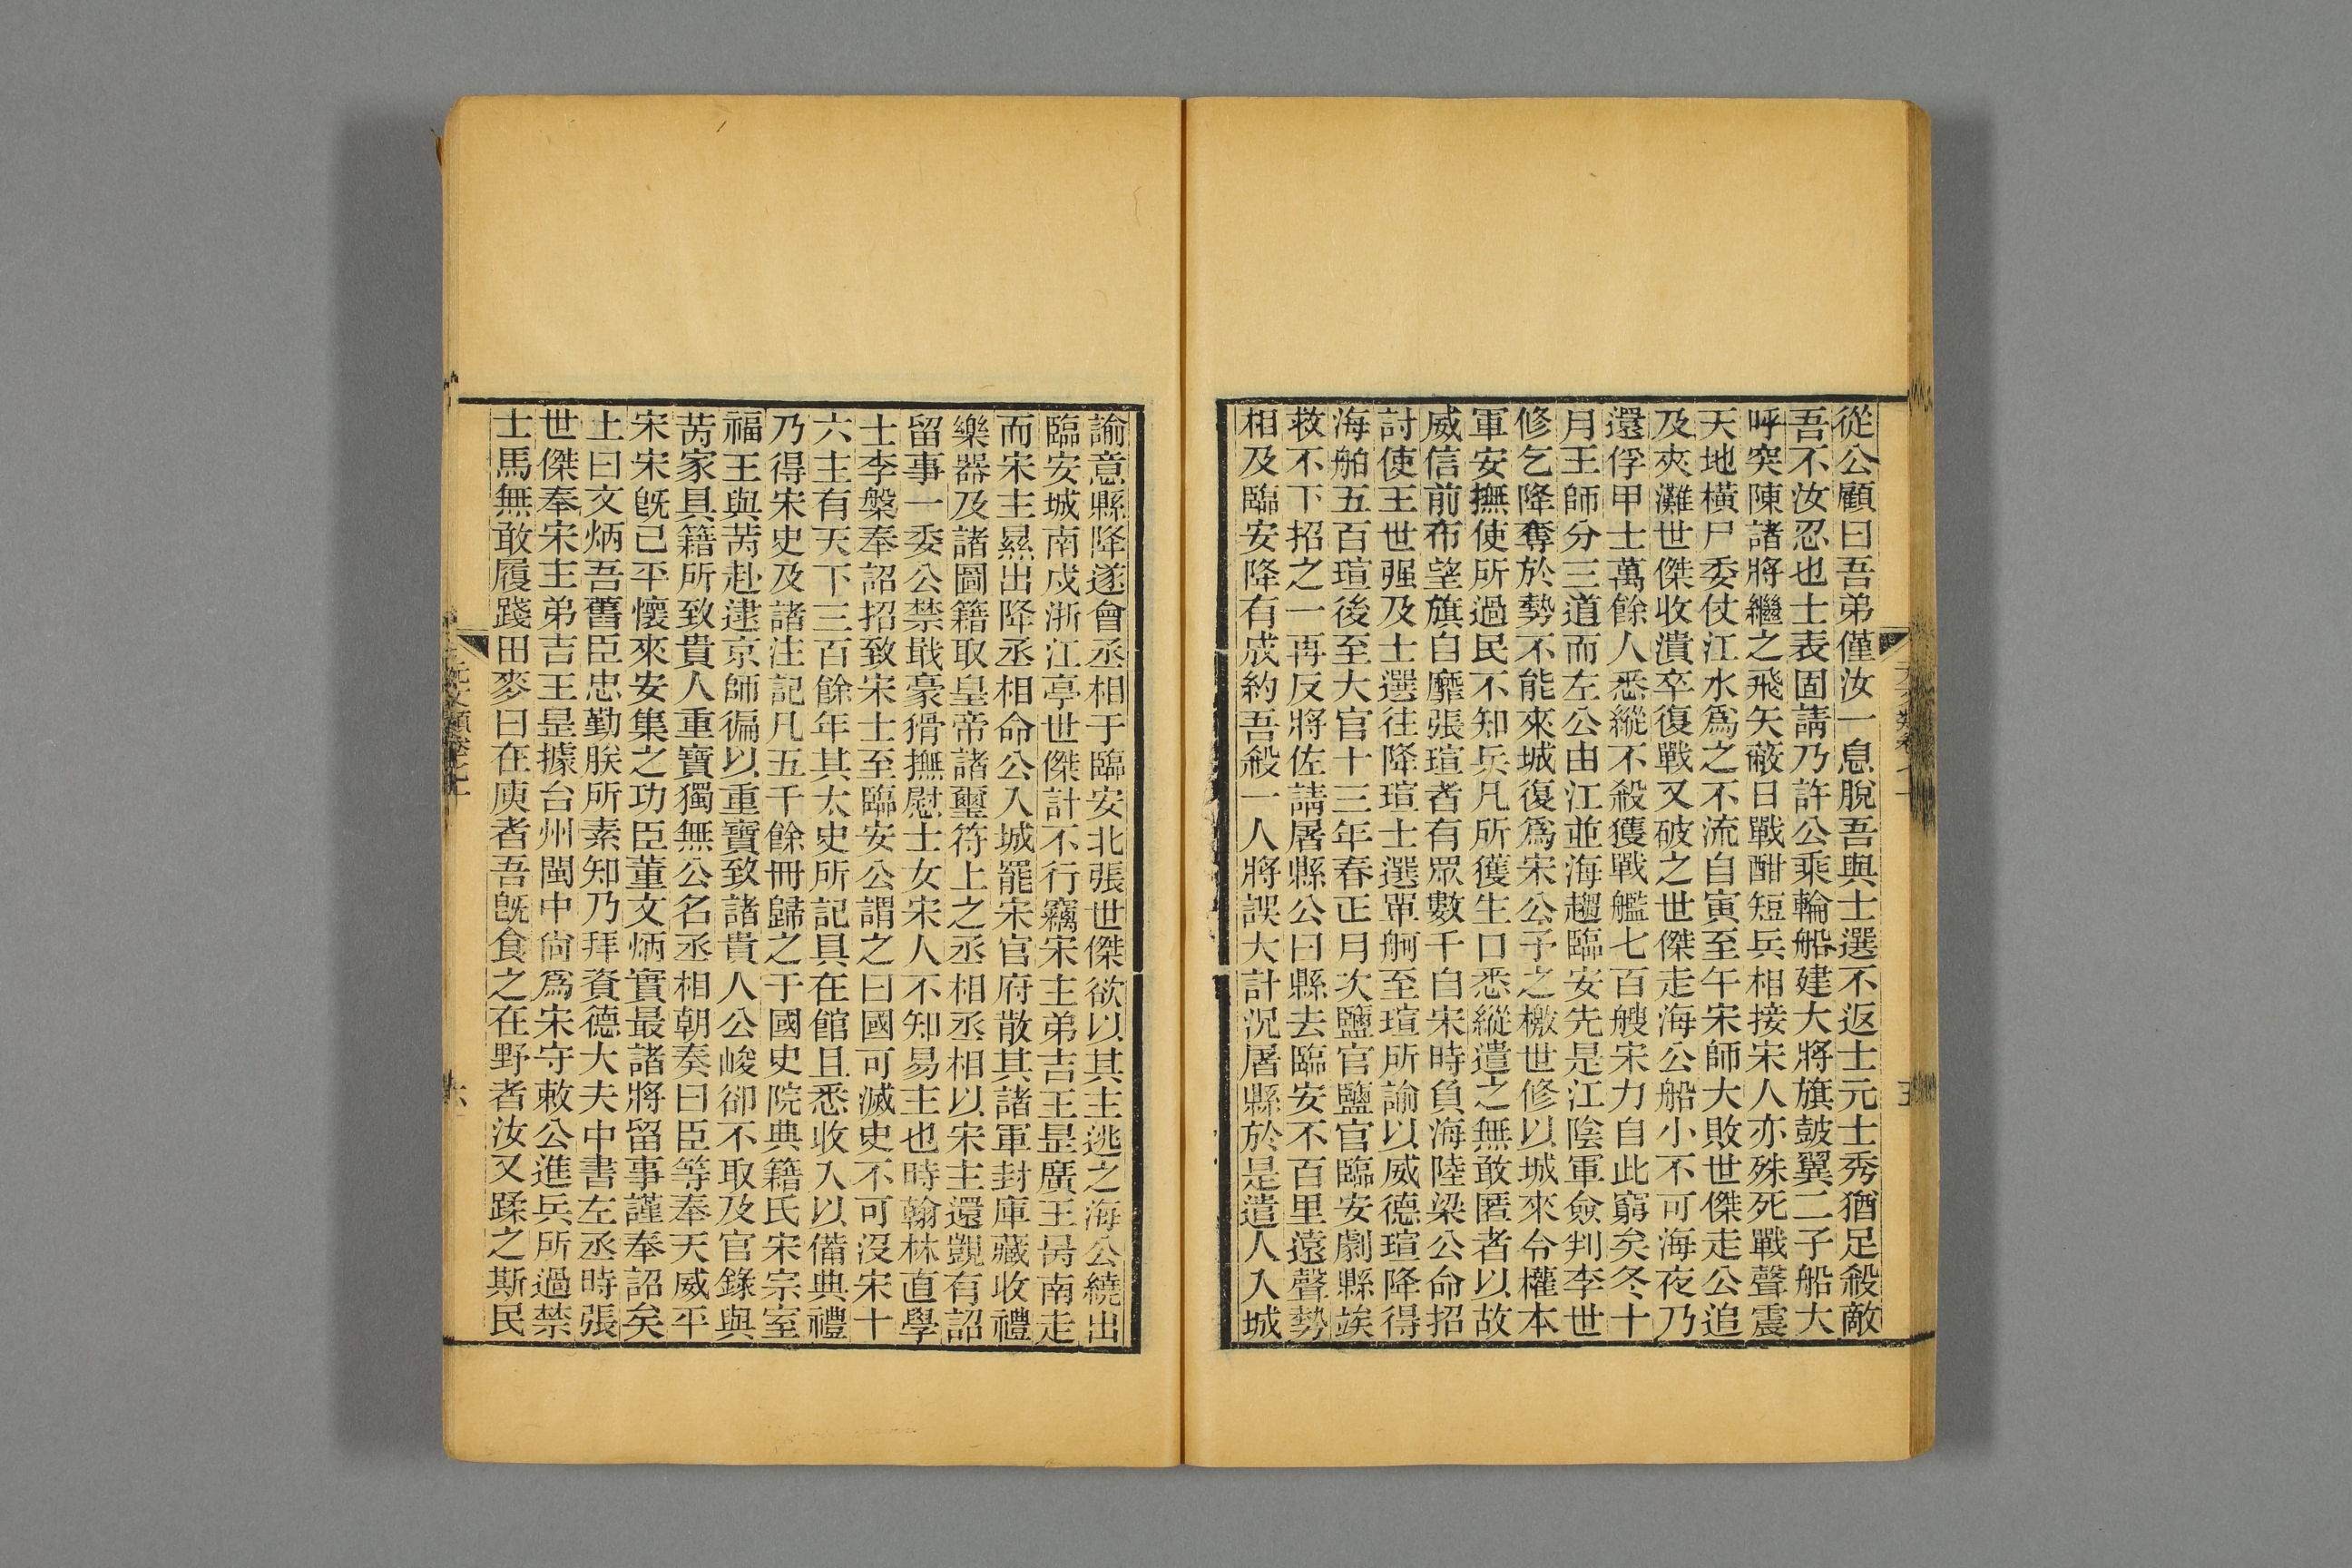 從公顧曰吾弟僅汝一息脫吾與士選不返士元士秀猶足殺敵
吾不汝忍也士表固請乃許公乘輪船建大將旗鼓翼二子船大
呼突陳諸將繼之飛矢蔽日戰酣短兵相接宋人亦殊死戰聲震
天地橫尸委仗江水爲之不流自寅至午宋師大敗世傑走公追
及夾灘世傑收潰卒復戰又破之世傑走海公船小不可海夜乃
還俘甲士萬餘人悉縱不殺獲戰艦七百艘宋力自此窮矣冬十
月王師分三道而左公由江並海趨臨安先是江陰軍僉判李世
修乞降奪於勢不能來城復爲宋公予之檄世修以城來令權本
軍安撫使所過民不知兵凡所獲生口悉縱遣之無敢匿者以故
威信前布望旗自靡張瑄者有眾數千自宋時負海陸梁公命招
討使王世强及士選往降瑄士選單舸至瑄所諭以威德瑄降得
海舶五百瑄後至大官十三年春正月次鹽官鹽官臨安劇縣竢
救不下招之一再反將佐請屠縣公曰縣去臨安不百里遠聲勢
相及臨安降有成約吾殺一人將誤大計況屠縣於是遣人入城
諭意縣降遂會丞相于臨安北張世傑欲以其主逃之海公繞出
臨安城南戍浙江亭世傑計不行竊宋主弟吉王昰廣王昺南走
而宋主㬎出降丞相命公入城罷宋官府散其諸軍封庫藏收禮
樂器及諸圖籍取皇帝諸璽符上之丞相丞相以宋主還覲有詔
留事一委公禁戢豪猾撫慰士女宋人不知易主也時翰林直學
士李槃奉詔招致宋士至臨安公謂之曰國可滅史不可沒宋十
六主有天下三百餘年其太史所記具在館且悉收入以備典禮
乃得宋史及諸注記凡五千餘冊歸之于國史院典籍氏宋宗室
福王與芮赴逮京師徧以重寶致諸貴人公峻卻不取及官錄與
芮家具籍所致貴人重寶獨無公名丞相朝奏曰臣等奉天威平
宋宋旣已平懷來安集之功臣董文炳實最諸將留事謹奉詔矣
上曰文炳吾舊臣忠勤朕所素知乃拜資德大夫中書左丞時張
世傑奉宋主弟吉王昰據台州閩中尙爲宋守敕公進兵所過禁
士馬無敢履踐田麥曰在庾者吾旣食之在野者汝又蹂之斯民